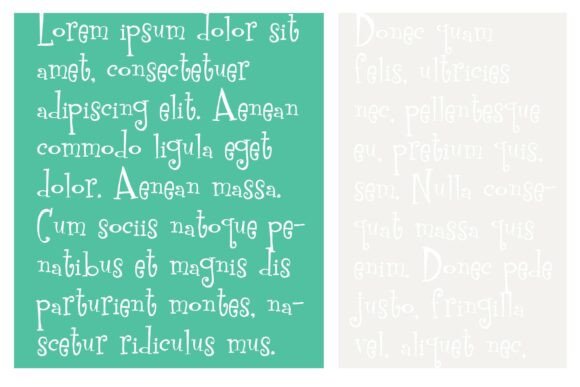 Lorem ipsum dolor sit
amet, consectetuer
adipiscing elit. Aenean
commodo ligula eget
dolor. Aenean massa.
Cum sociis natoque pe-
natibus et magnis dis
parturient montes, na-
scetur ridiculus mus.
Donec quam
felis, ultricies
nec, pellentesque
eu, pretium quis,
sem. Nulla conse-
quat massa quis
enim. Donec pede
justo, fringilla
vel, aliquet nec.